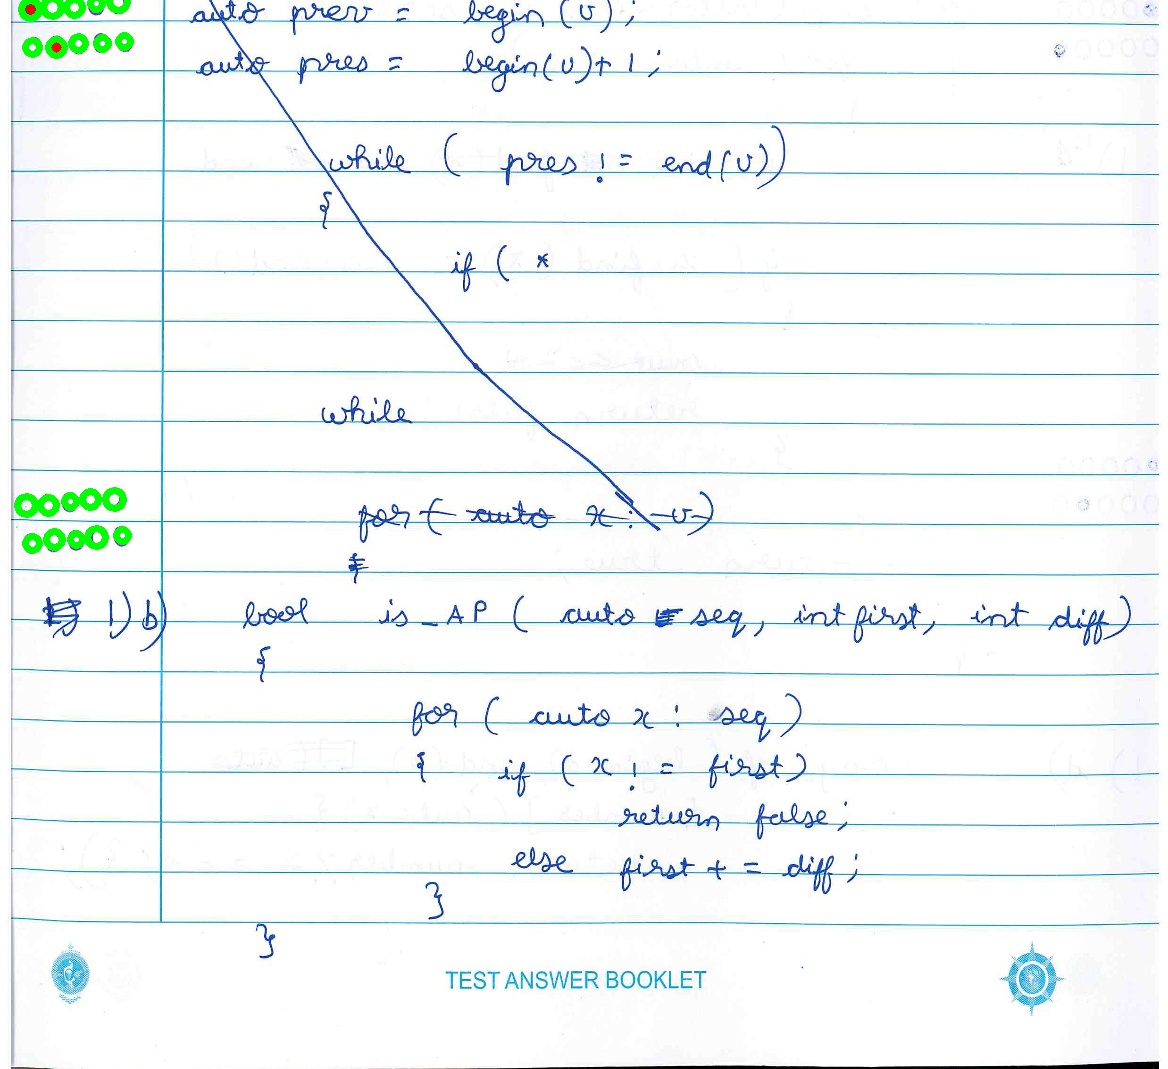 auto prev = begin (v) ;
auto pres = begin(v)+ 1 ;
while ( pres != end(v))
{
if ( *
while
for ( auto x : v)
{
1) b) bool is_AP ( auto seq, int first, int diff)
{
for ( auto x : seq)
{ if ( x != first)
return false;
else first + = diff ;
}
}
TEST ANSWER BOOKLET